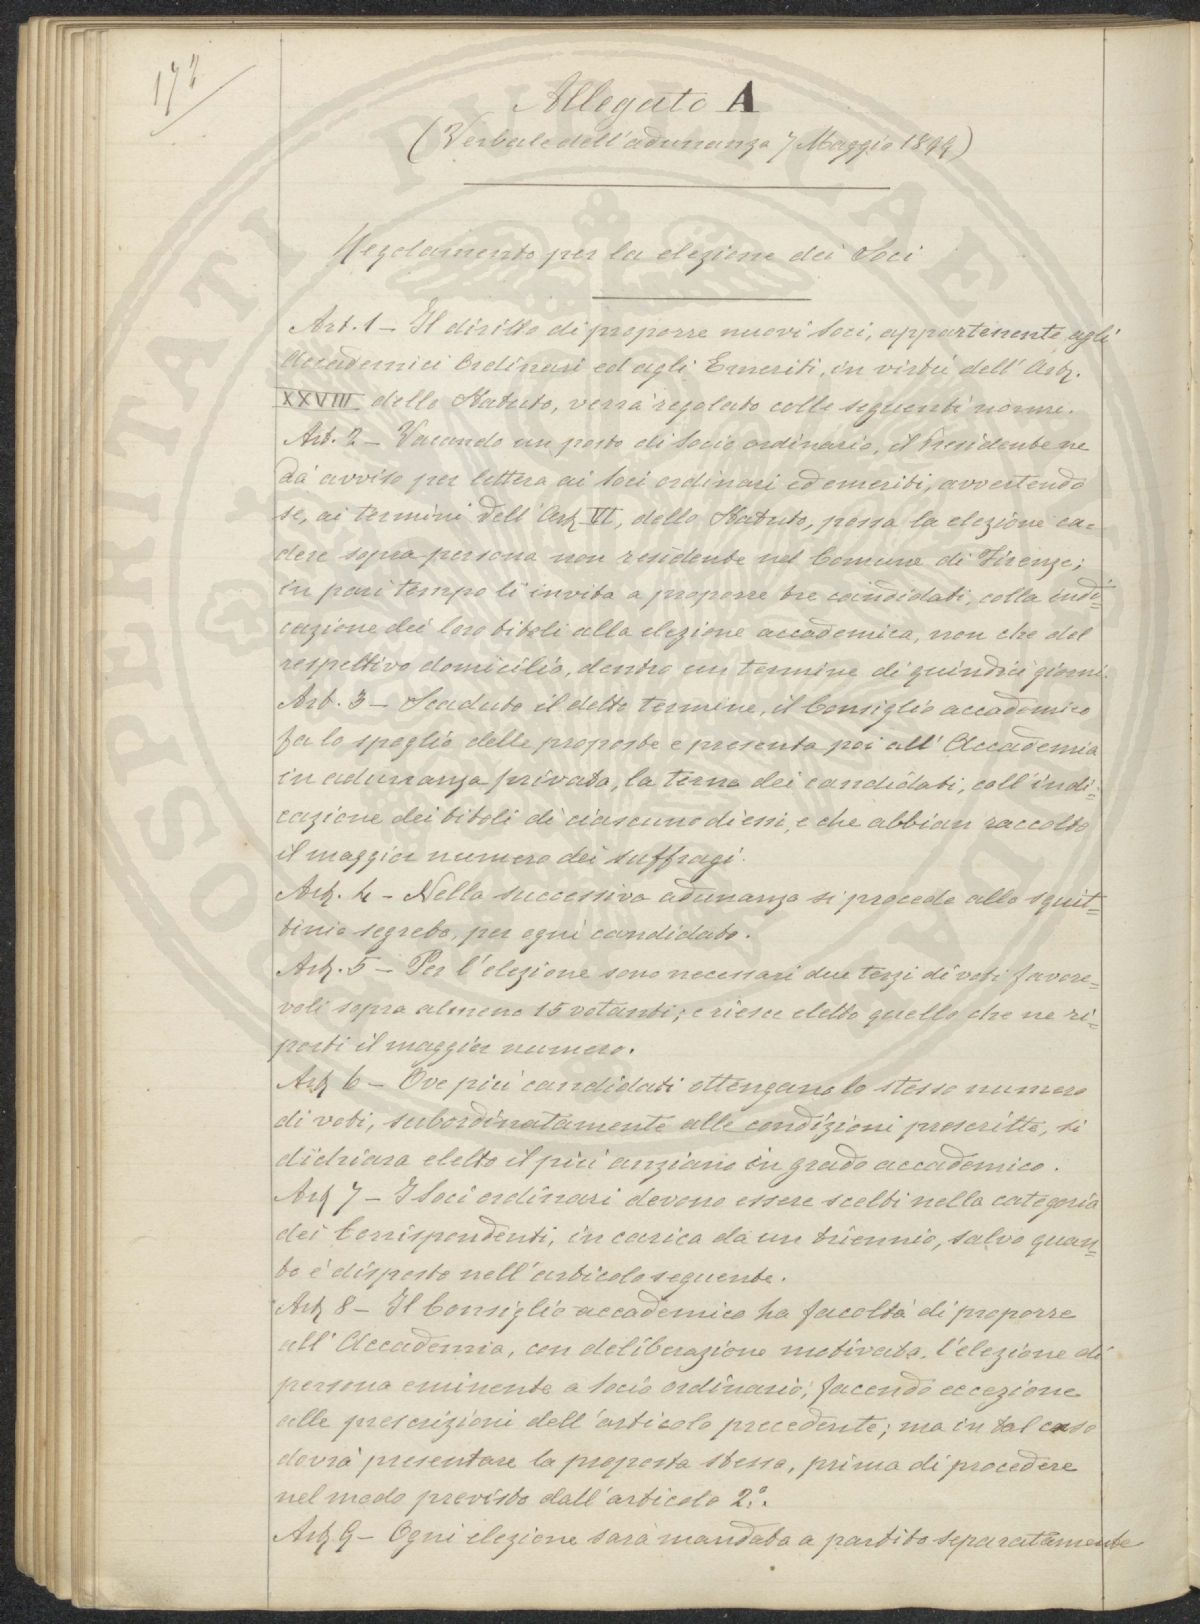 172
Allegato A
(Verbale dell'adunanza 7 Maggio 1899)
Regolamento per la elezione dei Soci
Art. 1 - Il diritto di proporre nuovi Soci, appartenente agli
Accademici Ordinari ed agli Emeriti, in virtù dell' Art.
XXVIII dello Statuto, verrà regolato colle seguenti norme.
Art. 2 - Vacando un posto di Socio ordinario, il Presidente ne
dà avviso per lettera ai Soci ordinari ed emeriti, avvertendo
se, ai termini dell' Art. VI, dello Statuto, possa la elezione ca=
dere sopra persona non residente nel Comune di Firenze;
in pari tempo li invita a proporre tre candidati, colla indi=
cazione dei loro titoli alla elezione accademica, non che del
respettivo domicilio, dentro un termine di quindici giorni.
Art. 3 - Scaduto il detto termine, il Consiglio accademico
fa lo spoglio delle proposte e presenta poi all' Accademia
in adunanza privata, la terna dei candidati, coll' indi=
cazione dei titoli di ciascuno di essi, e che abbian raccolto
il maggior numero dei suffragi.
Art. 4 - Nella successiva adunanza si procede allo squit=
tinio segreto, per ogni candidato.
Art. 5 - Per l'elezione sono necessari due terzi di voti favore=
voli sopra almeno 15 votanti; e riesce eletto quello che ne ri=
porti il maggior numero.
Art. 6 - Ove più candidati ottengano lo stesso numero
di voti, subordinatamente alle condizioni prescritte, si
dichiara eletto il più anziano in grado accademico.
Art. 7 - I Soci ordinari devono essere scelti nella categoria
dei Corrispondenti, in carica da un triennio, salvo quan=
to è disposto nell'articolo seguente.
Art. 8 - Il Consiglio accademico ha facoltà di proporre
all' Accademia, con deliberazione motivata, l'elezione di
persona eminente a Socio ordinario, facendo eccezione
alle prescrizioni dell'articolo precedente; ma in tal caso
dovrà presentare la proposta stessa, prima di procedere
nel modo previsto dall'articolo 2º.
Art. 9 - Ogni elezione sarà mandata a partito separatamente
SOSPERITATI PUBLICAE